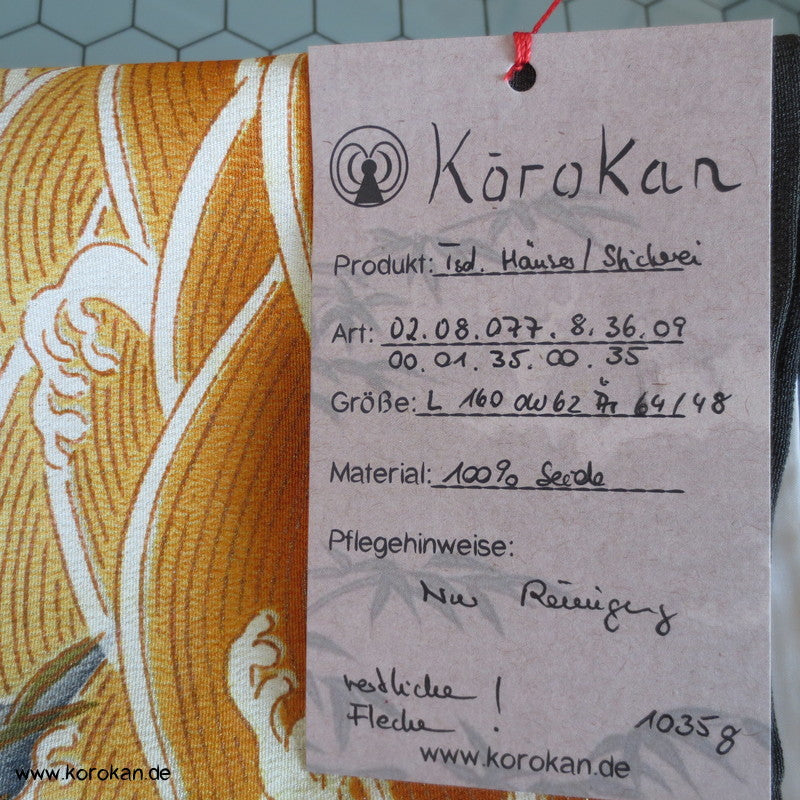 Kōrokan
Produkt: Tsd. Häuser / Stickerei
Art: 02.08.077.8.36.09
00.01.35.00.35
Größe: L 160 OW62 Är 64/48
Material: 100% Seide
Pflegehinweise:
Nur Reinigung
restliche !
Flecke
1035g
www.korokan.de
www.korokan.de